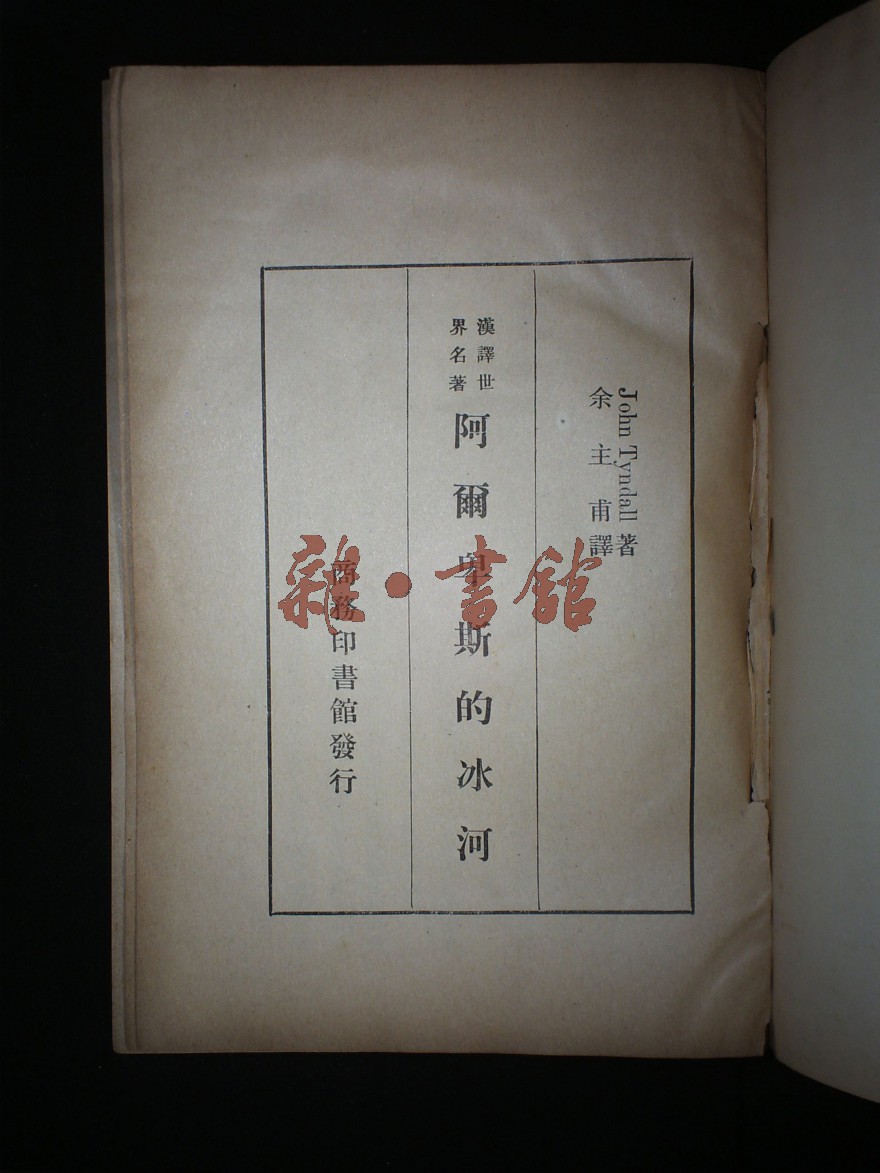 John Tyndall 著
余主甫譯
漢譯世
界名著
阿爾卑斯的冰河
商務印書館發行
雜·書館